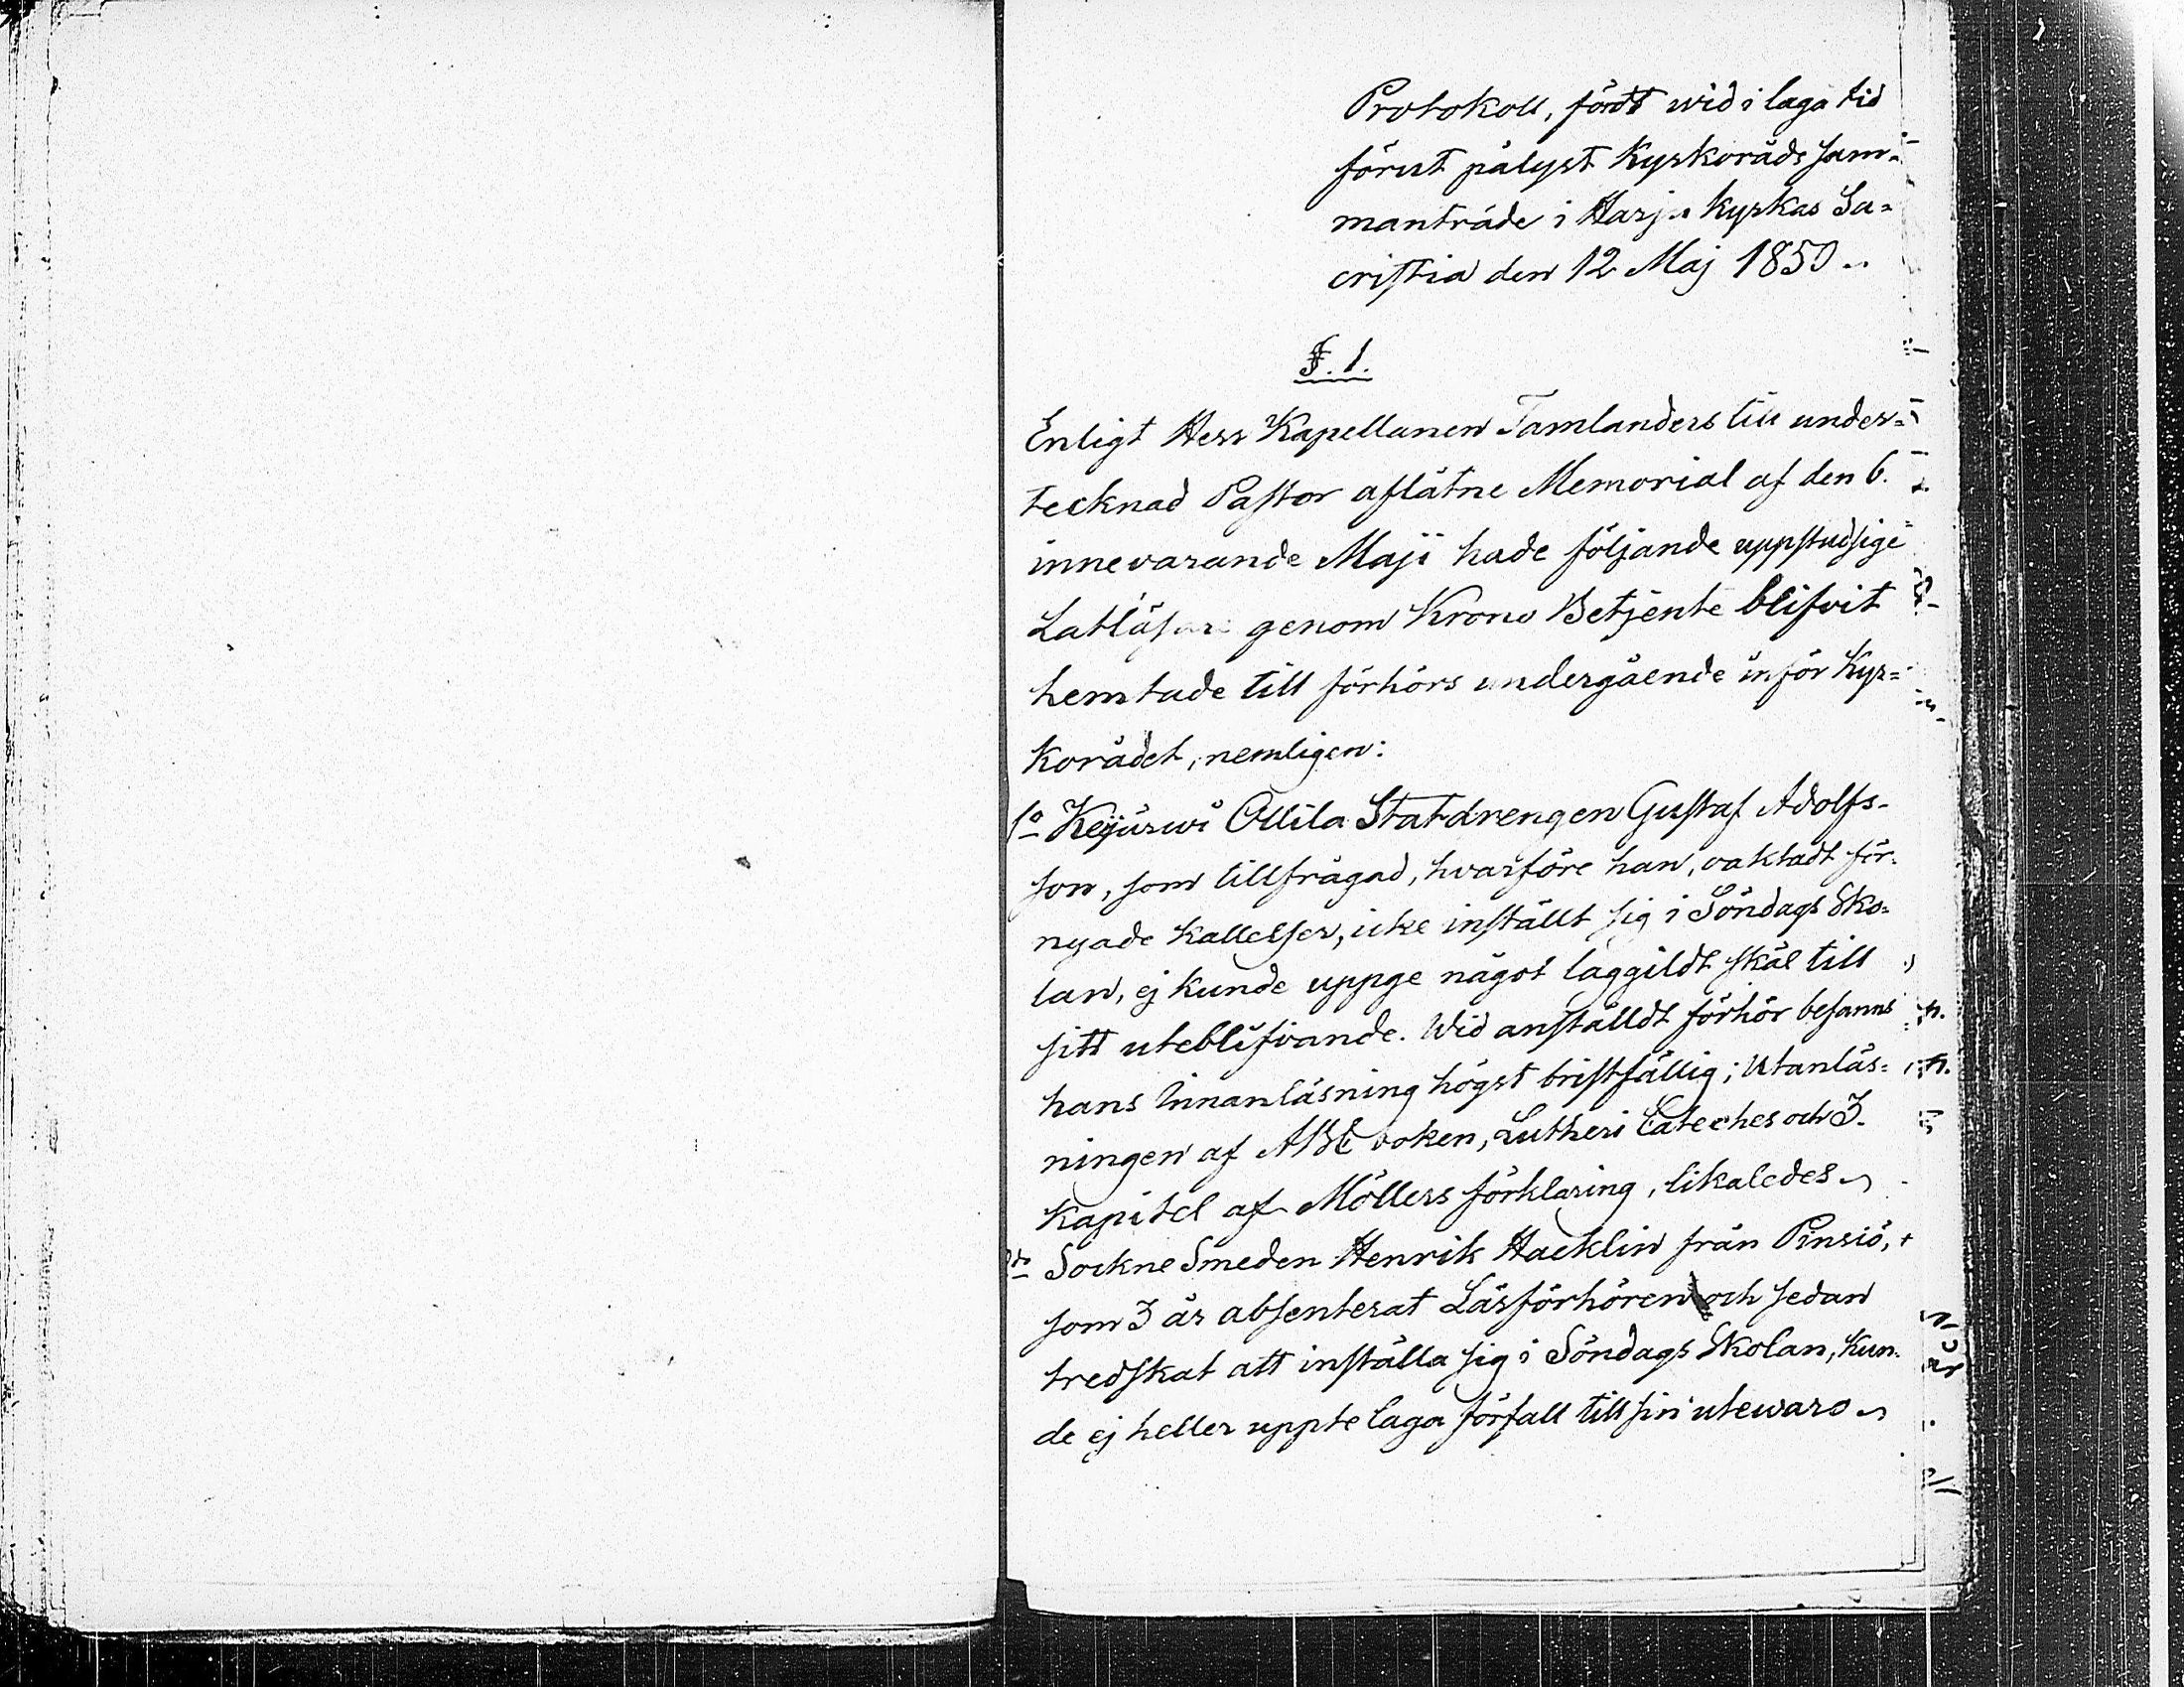 Protokoll, fördt wid i laga tid
förut pålyst Kyrkoråds sam-
manträde i Harju Kyrkas Sa=
cristia den 12 Maj 1850.
§. 1.
Enligt Herr Kapellanen Tamlanders till under=
tecknad Pastor aflåtne Memorial af den 6.
innevarande Maji hade följande uppstudsige
Latläsare genom Krono Betjente blifvit
hemtade till förhörs undergående inför Kyr=
korådet, nemligen:
1o Keijärwi Ollila Statdrengen Gustaf Adolfs-
son, som tillfrågad, hvarföre han, oaktadt för-
nyade kallelser, icke inställt sig i Söndags Sko-
lan, ej kunde uppge något laggildt skäl till
sitt uteblifvande. Wid anställdt förhör befanns
hans Innanläsning högst bristfällig; Utanläs=
ningen af ABC boken, Lutheri Cateches och 3.
Kapitel af Möllers förklaring, likaledes
2do Sockne Smeden Henrik Hacklin från Pinsiö,
som 3 år absenterat Läsförhören och sedan
tredskat att inställa sig i Söndags Skolan, kun-
de ej heller uppte laga förfall till sin utewaro